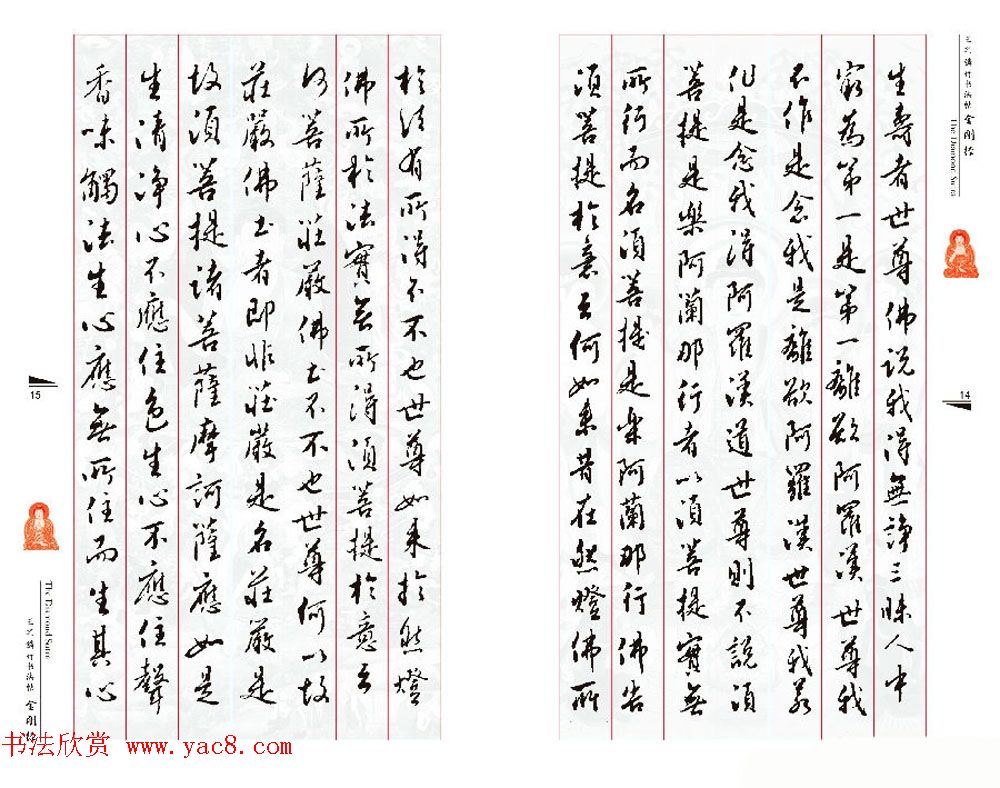 金刚经
The Diamond Sutra
14
生壽者世尊佛说我得無諍三昧人中
最為第一是第一離欲阿羅漢世尊我
不作是念我是離欲阿羅漢世尊我若
作是念我得阿羅漢道世尊則不說須
菩提是樂阿蘭那行者以須菩提實無
所行而名須菩提是樂阿蘭那行佛告
須菩提於意云何如來昔在然燈佛所
於法有所得不不也世尊如来於然燈
佛所於法實無所得須菩提於意云
何菩薩莊嚴佛土不不也世尊何以故
莊嚴佛土者即非莊嚴是名莊嚴是
故須菩提諸菩薩摩訶薩應如是
生清淨心不應住色生心不應住聲
香味觸法生心應無所住而生其心
15
The Diamond Sutra
金刚经
书法欣赏 www.yac8.com